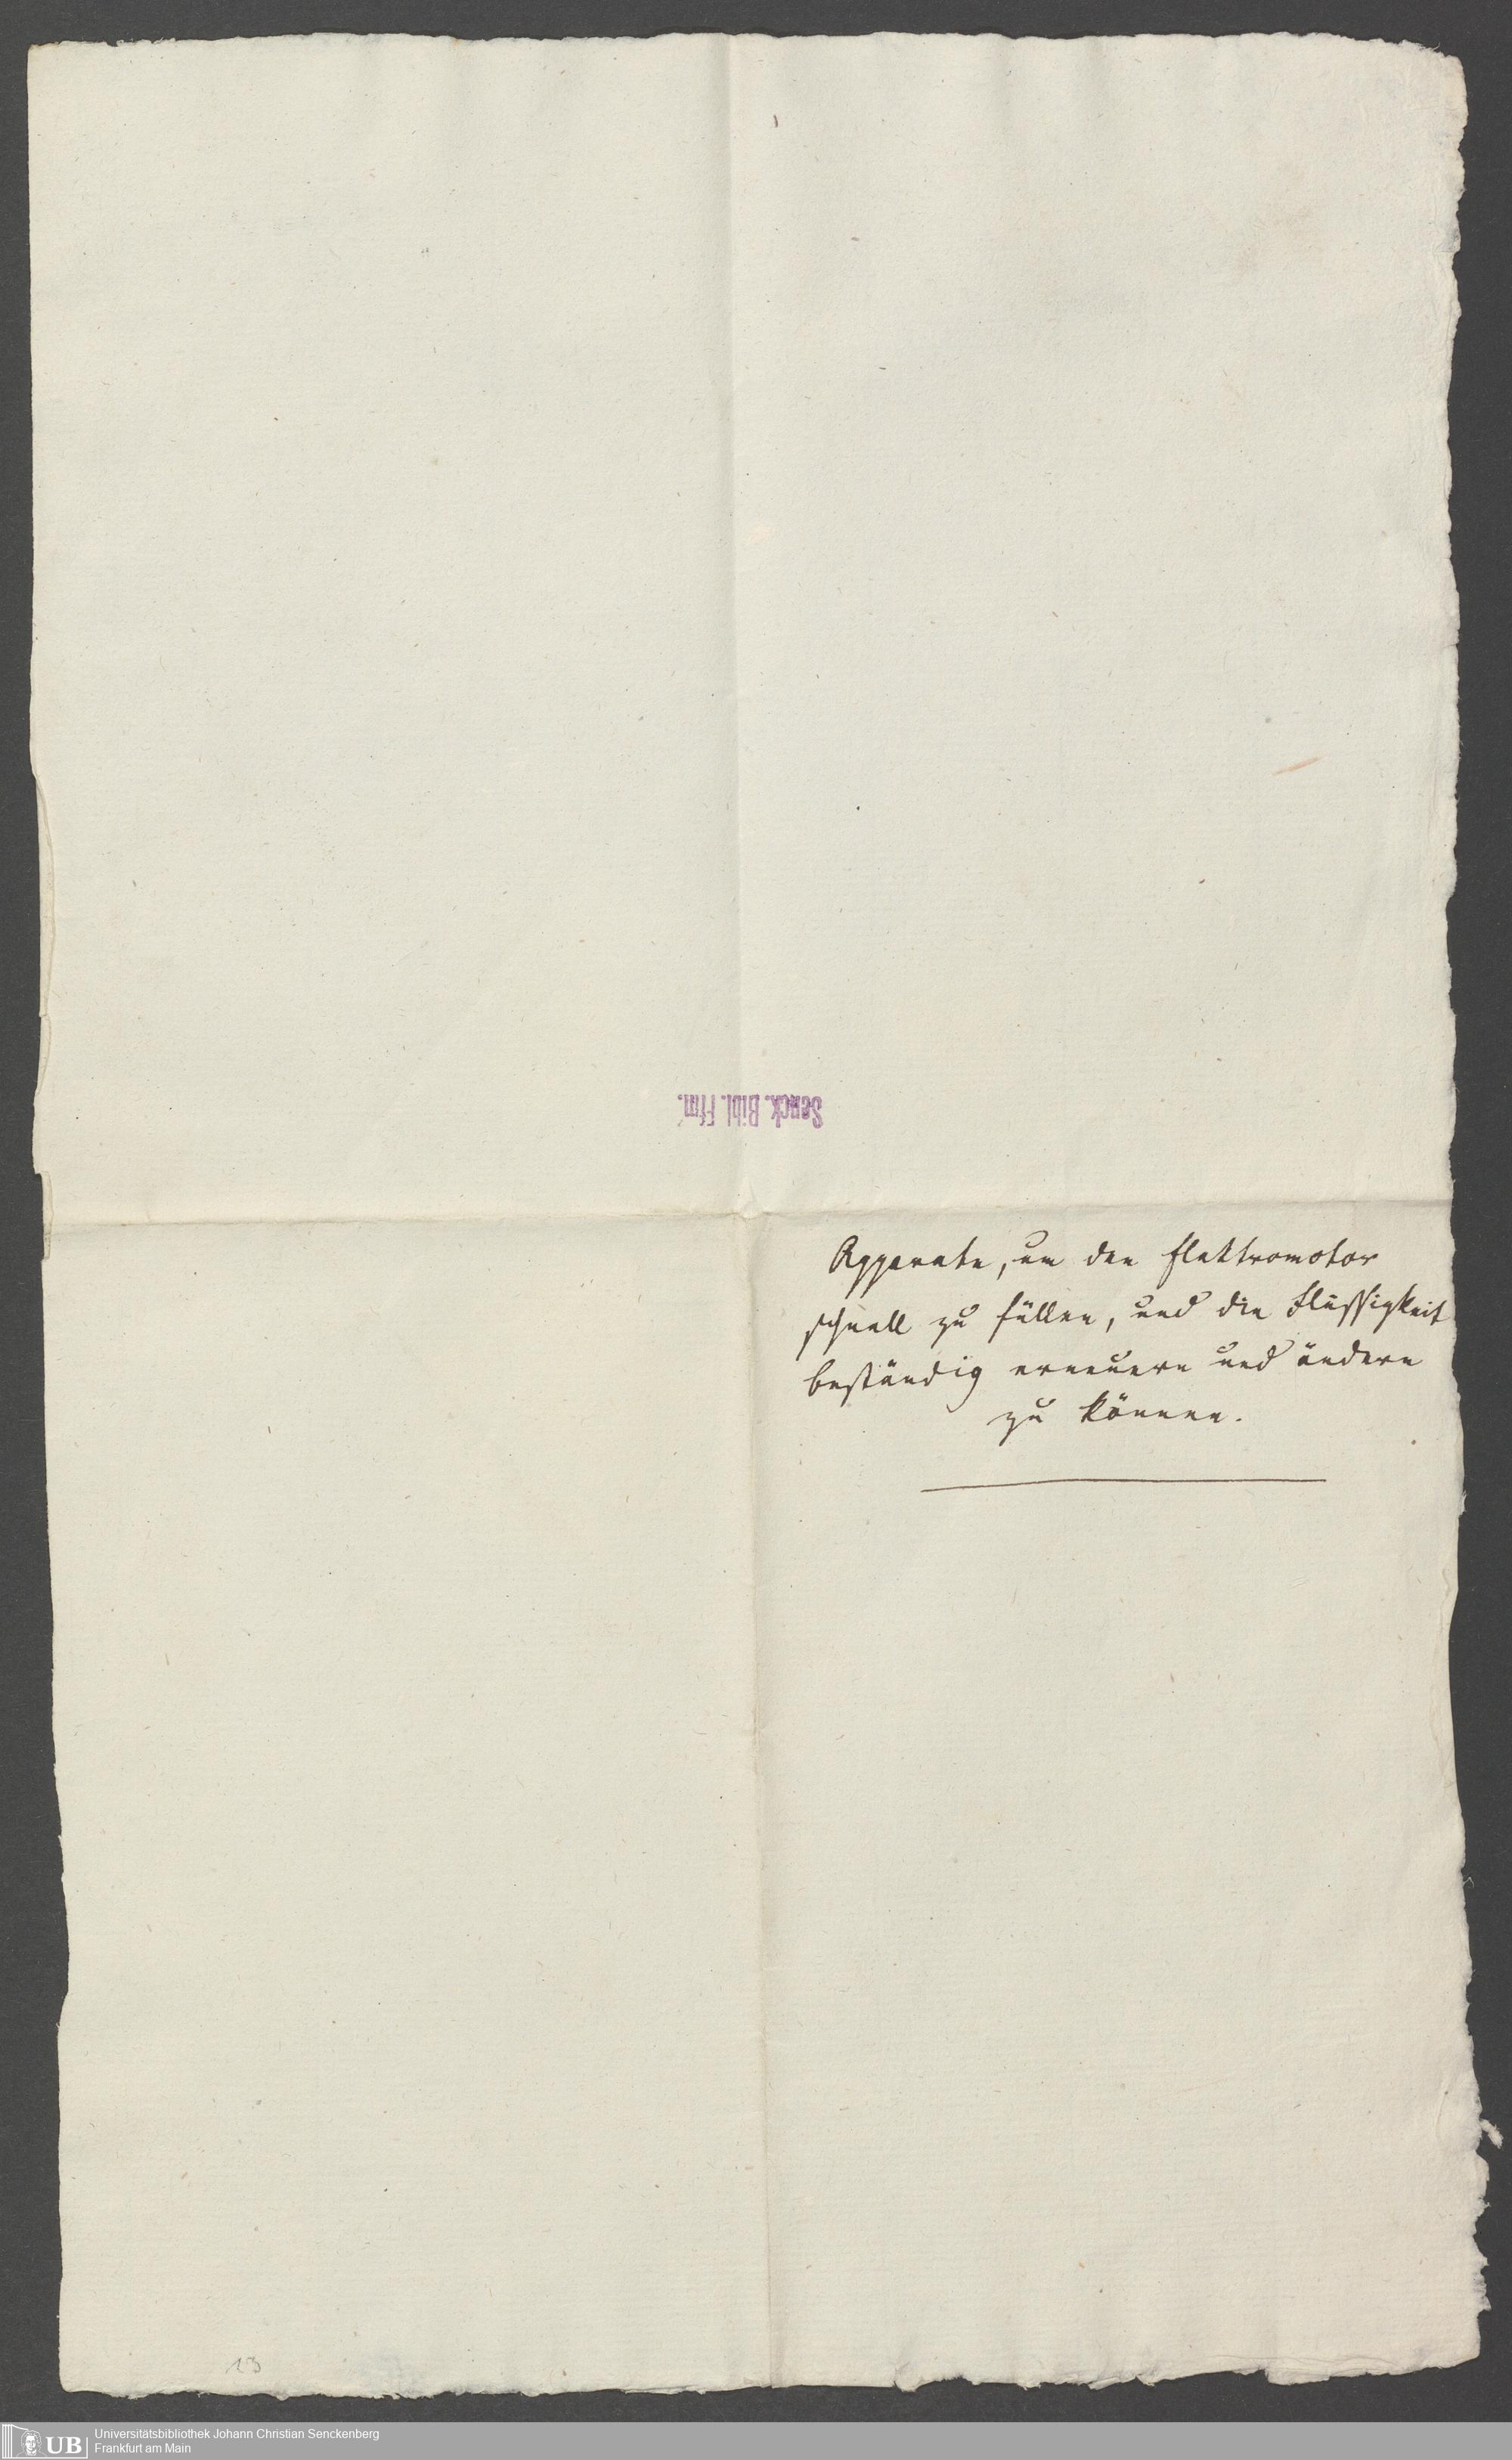 Senck. Bibl. Ffm.
Apparate, um den Elektromotor
schnell zu füllen, und die Flüssigkeit
beständig erneuern und ändern
zu können.
13
UB
Universitätsbibliothek Johann Christian Senckenberg
Frankfurt am Main